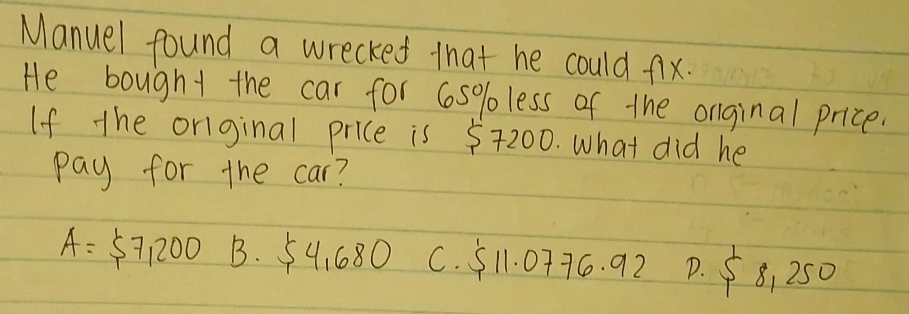 Manuel found a wrecked that he could fix.
He bought the car for 65% less of the original price.
If the original price is $7200. What did he
pay for the car?
A= $7,200 B. $4,680 C. $11.0776.92 D. $8,250